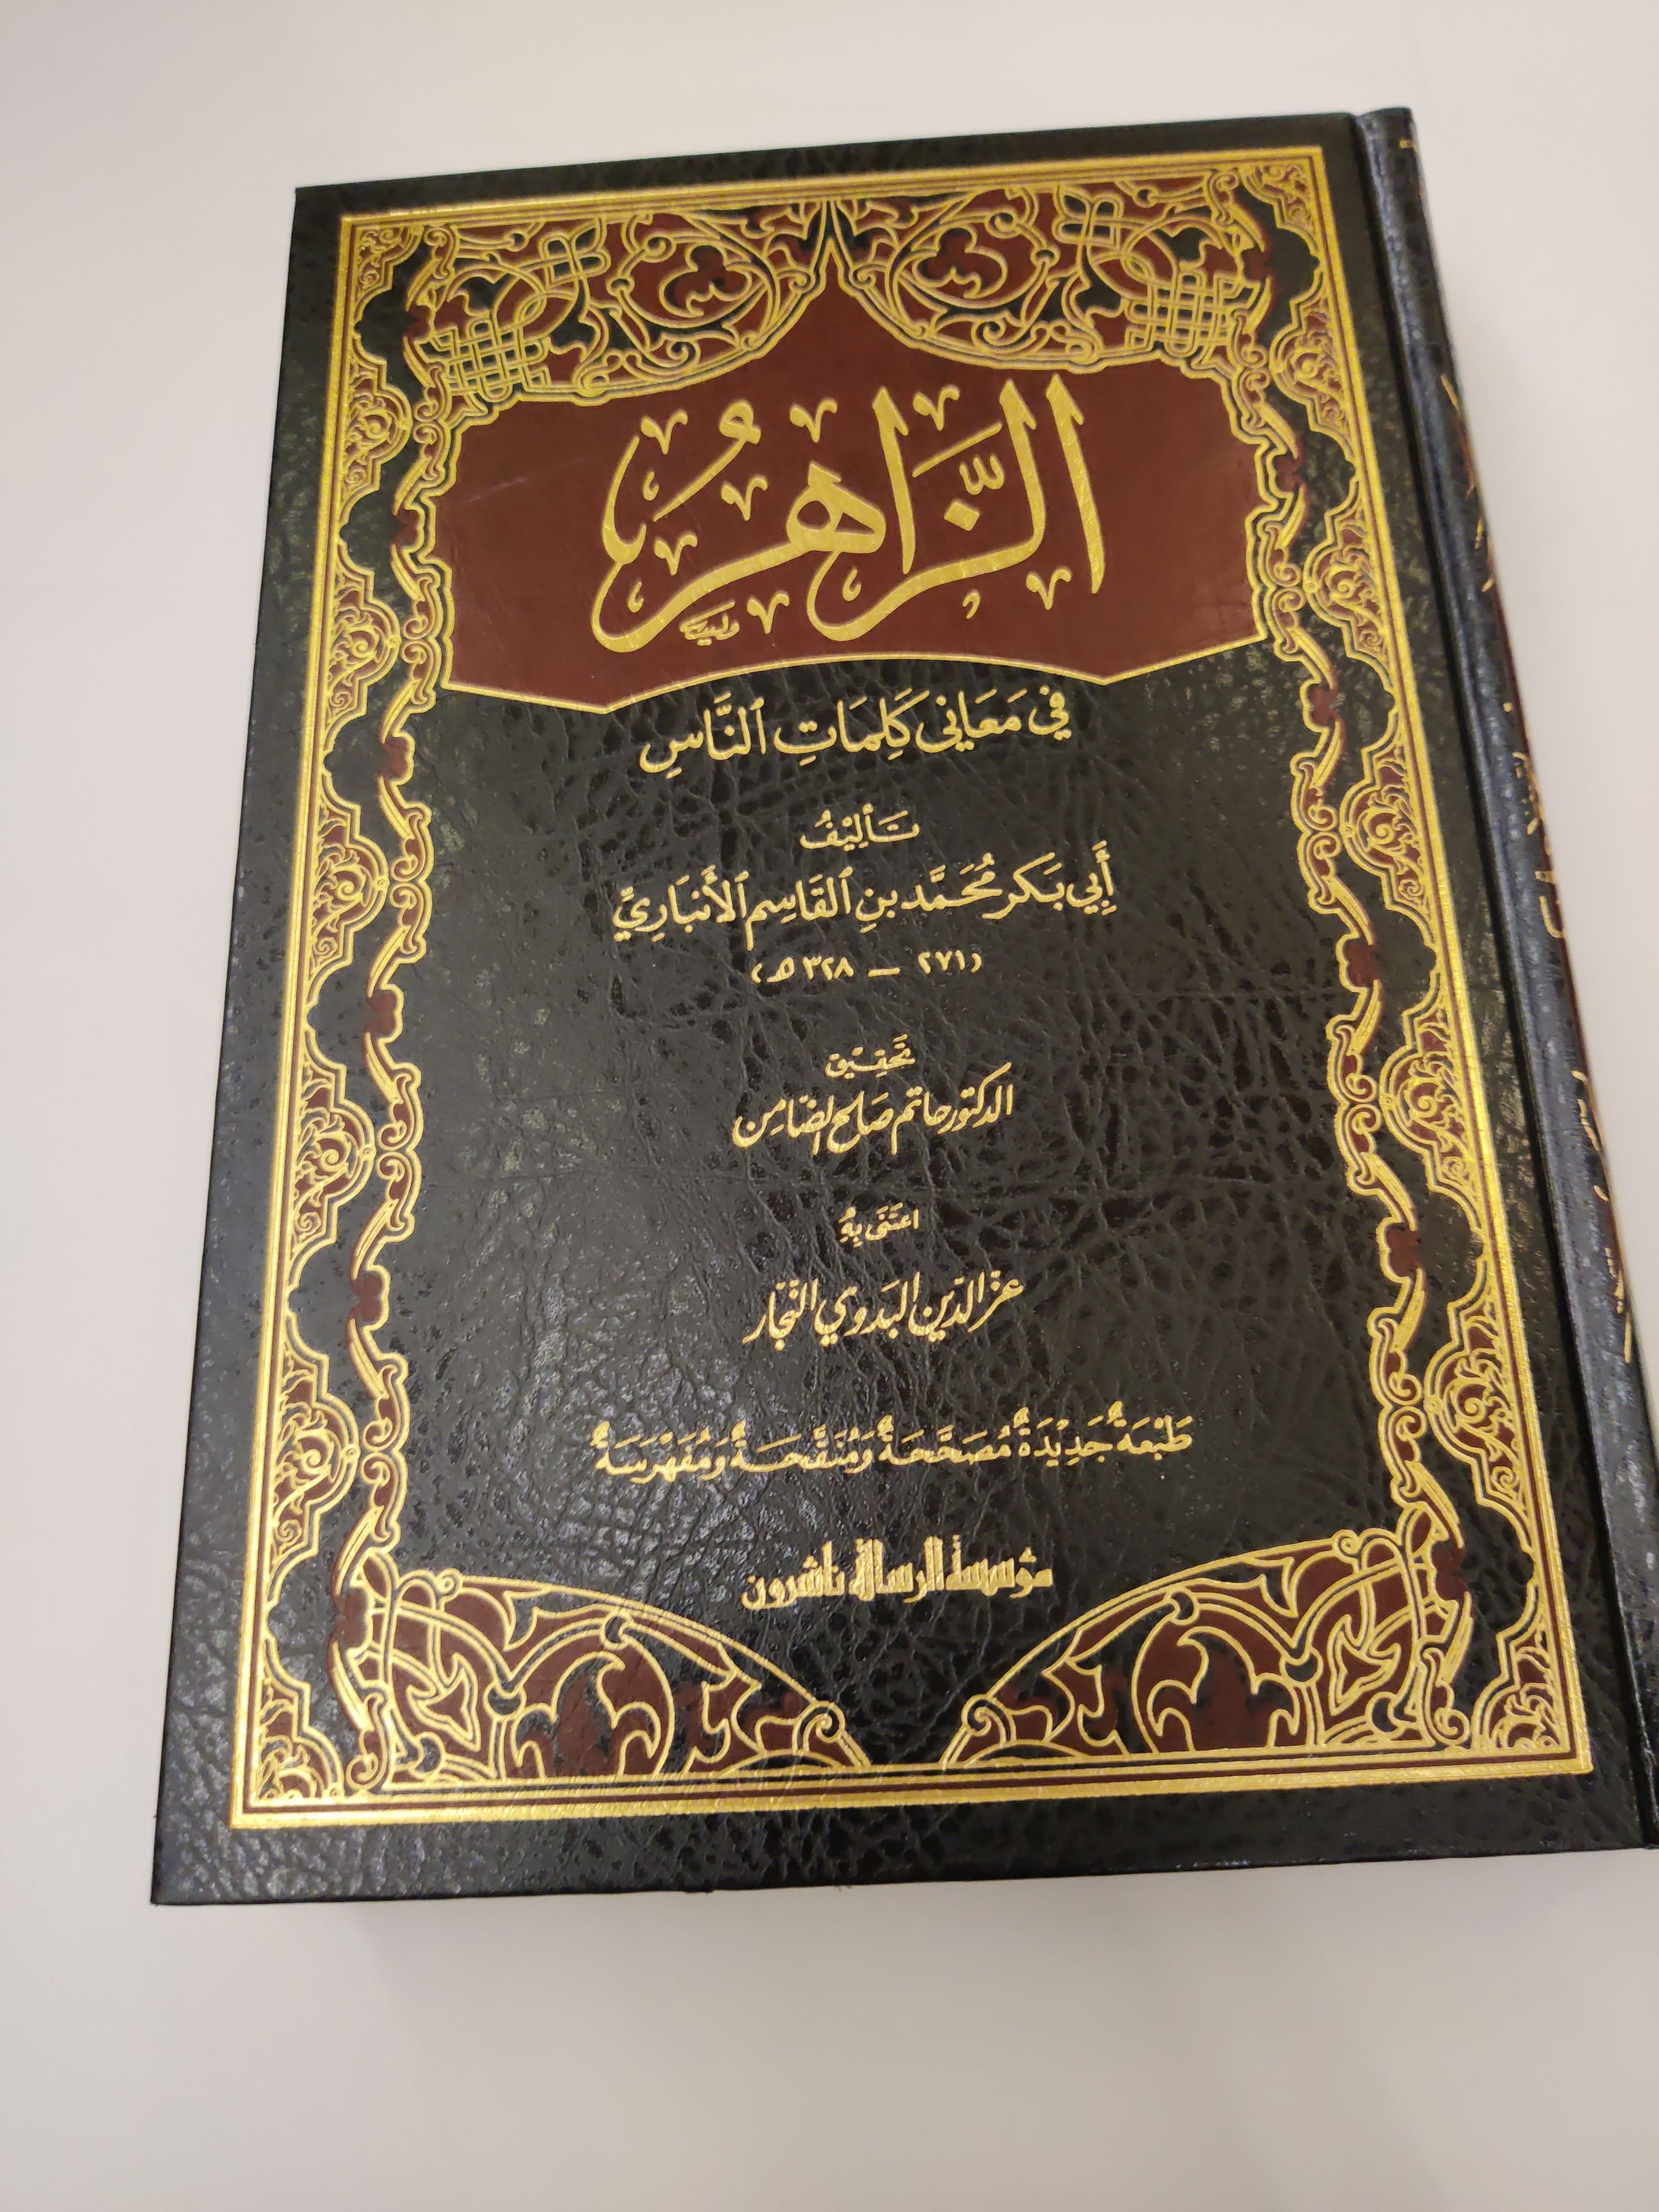 الزَّاهِرُ
وليد
في مَعَاني كَلِمَاتِ ٱلنَّاسِ
تَأْلِيْفُ
أَبِي بَكر مُحَمَّد بنِ ٱلقَاسِم ٱلأَنبَارِيِّ
(٢٧١ – ٣٢٨ هـ)
تَحقِيْق
الدكتور حاتم صَالح الضَامِن
اعتَنَى بِهِ
عز الدّين البَدَوي النجّار
طَبْعَةٌ جَدِيْدَةٌ مُصَحَّحَةٌ وَمُنَقَّحَةٌ وَمُفَهْرَسَةٌ
مؤسسة الرسالة ناشرون